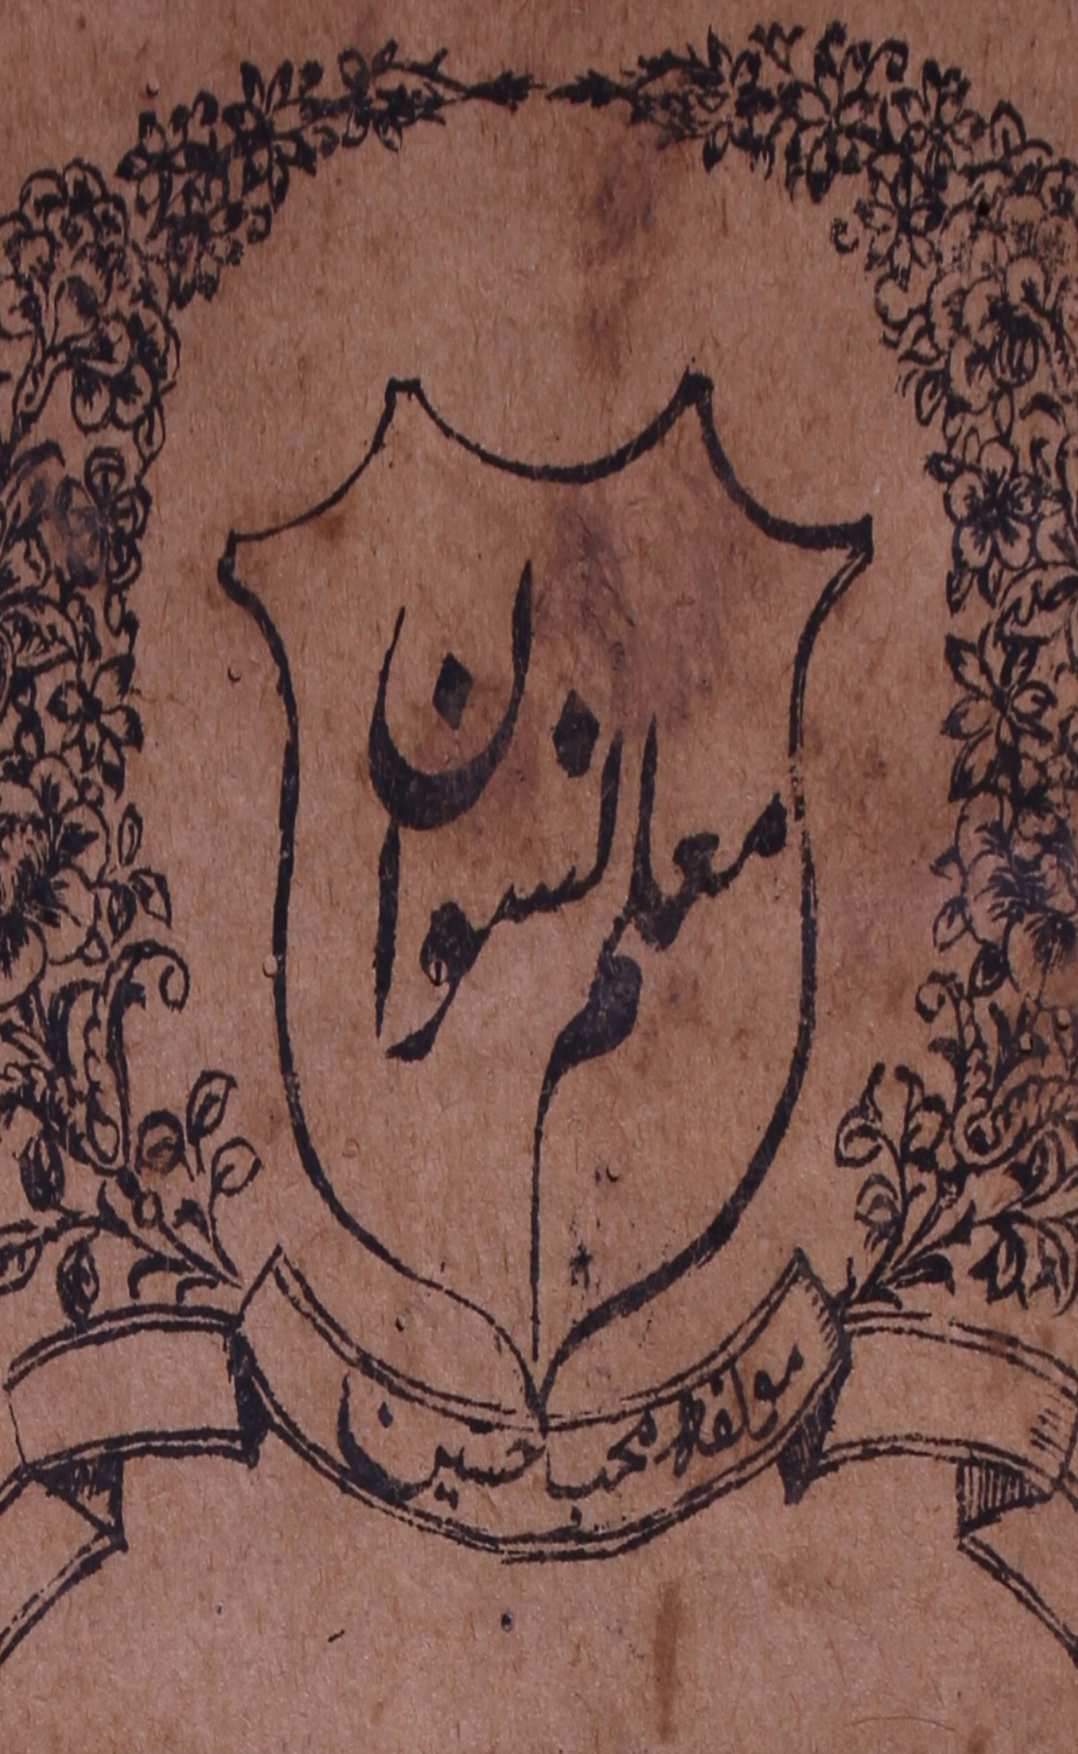 معلم نسوان
مولفہ محب حسین